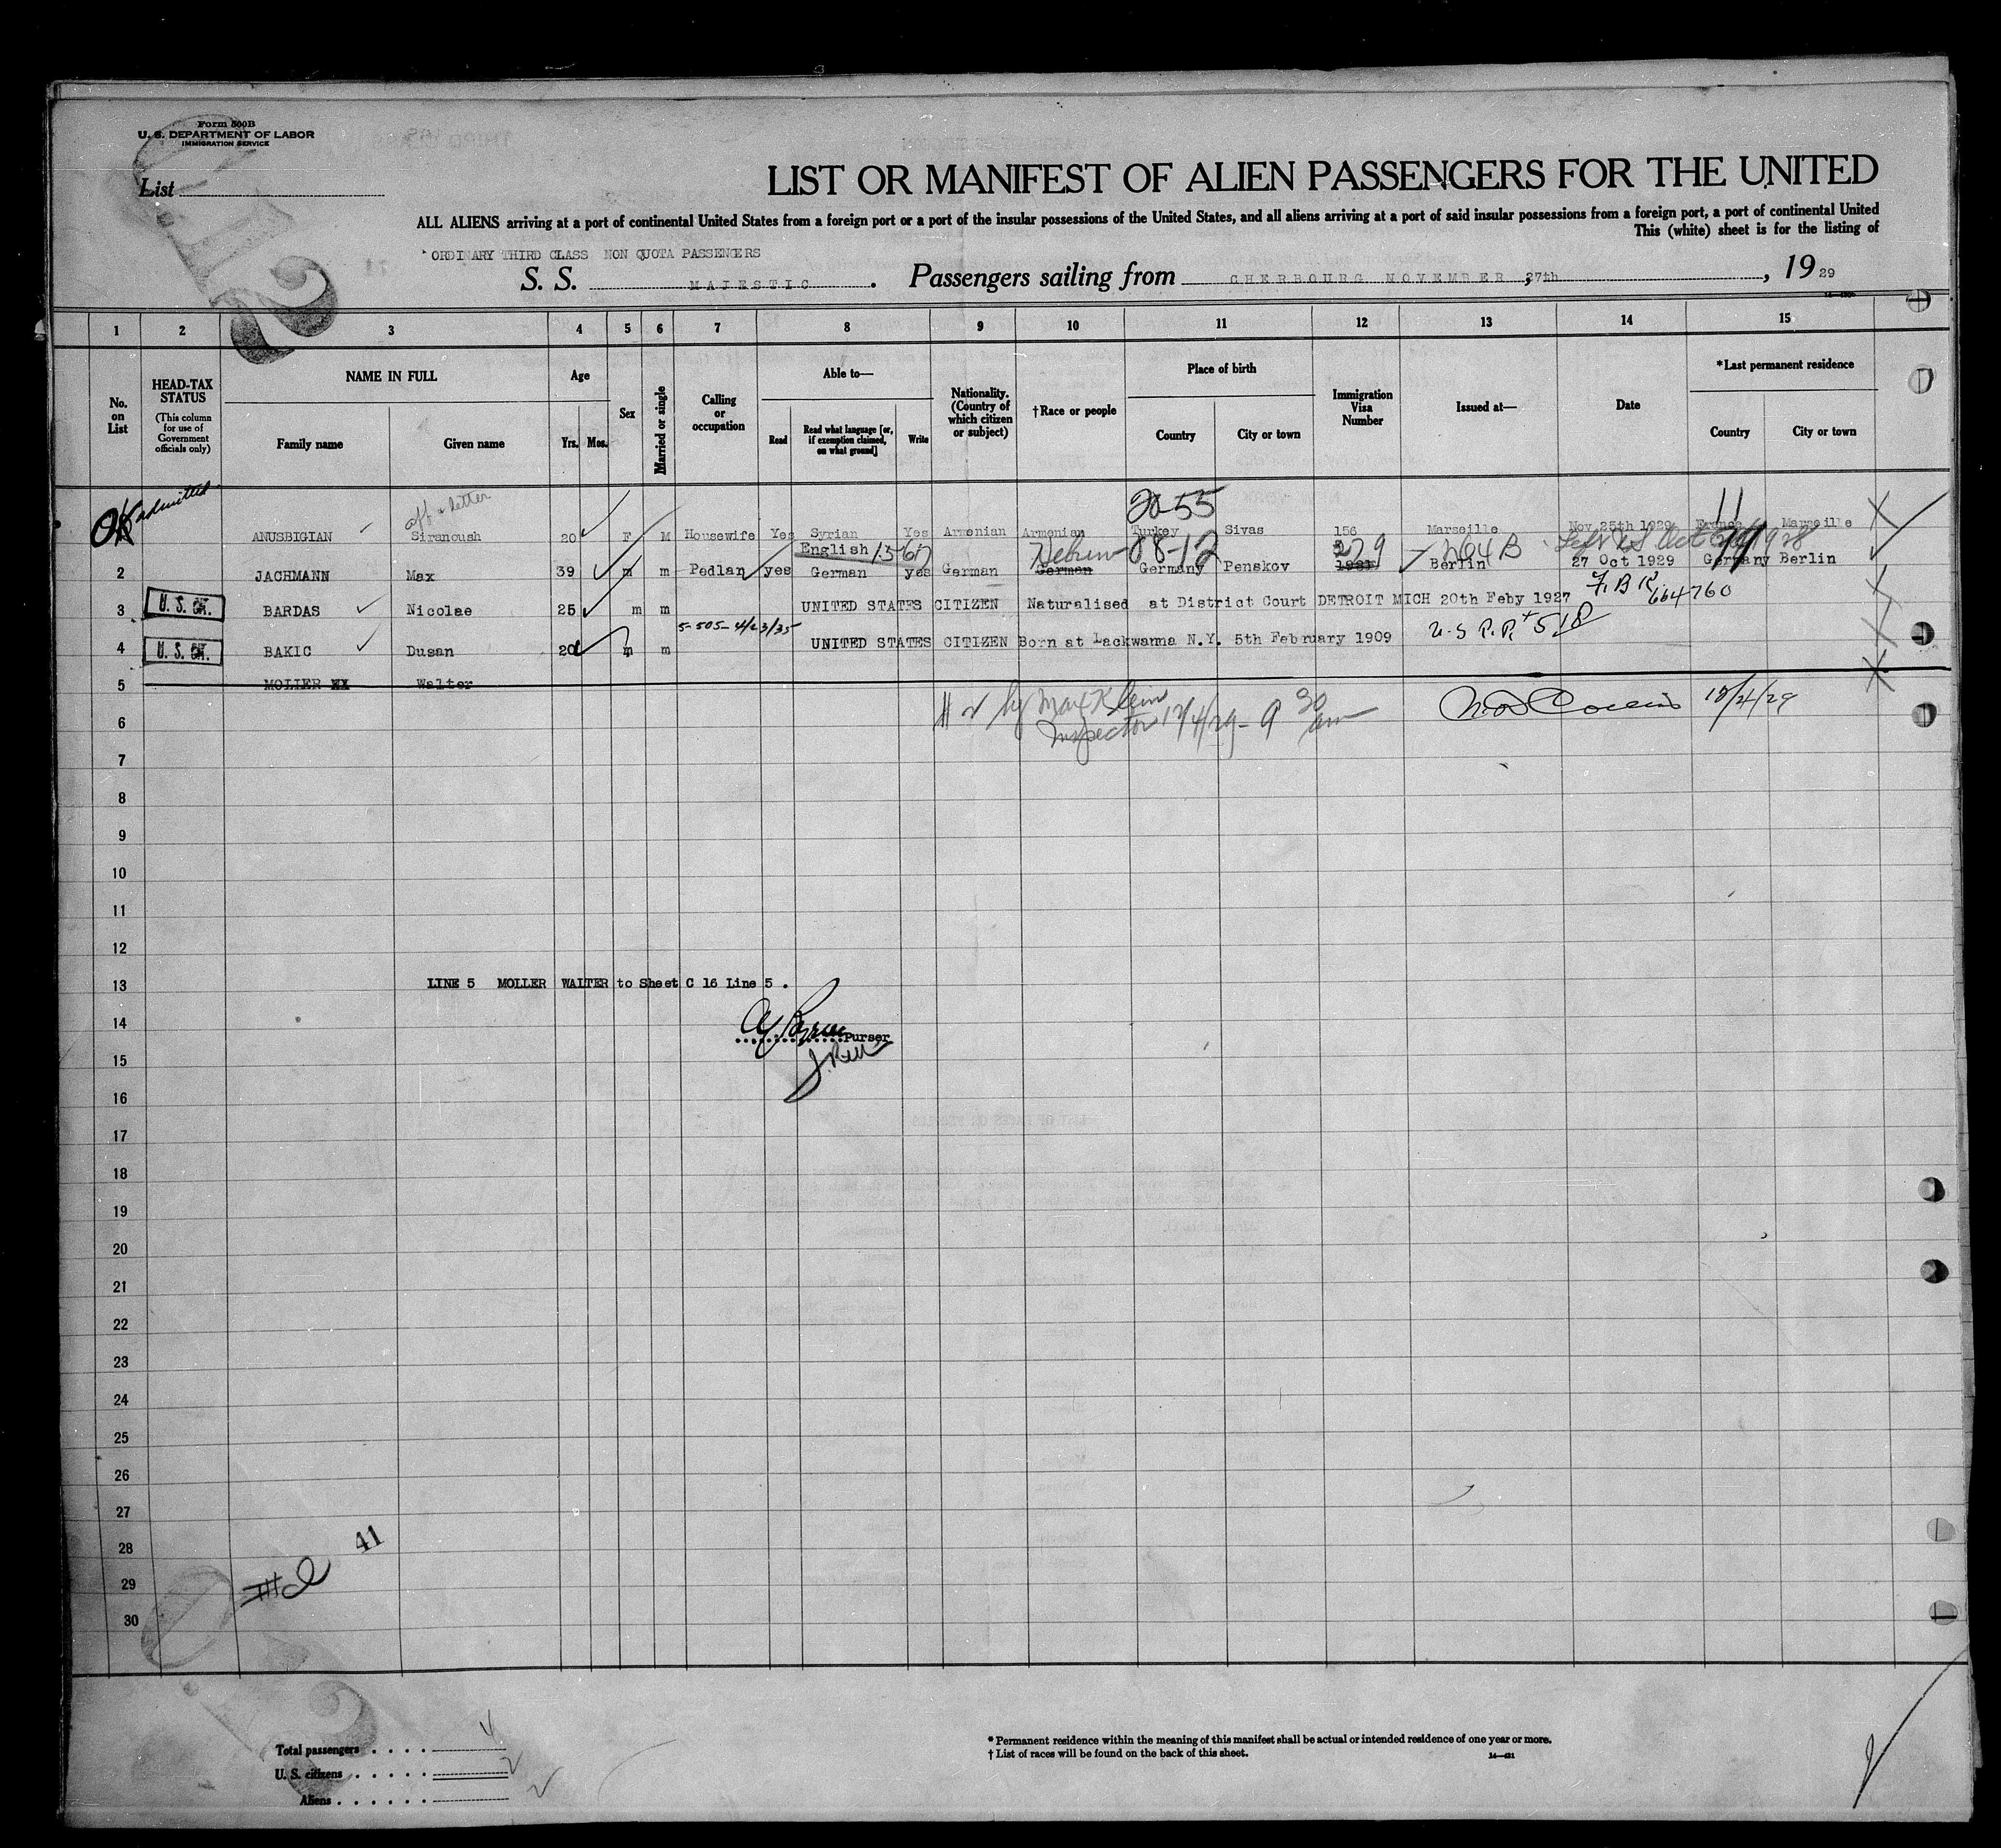 Form 500B
U. S. DEPARTMENT OF LABOR
IMMIGRATION SERVICE
List
LIST OR MANIFEST OF ALIEN PASSENGERS FOR THE UNITED
ALL ALIENS arriving at a port of continental United States from a foreign port or a port of the insular possessions of the United States, and all aliens arriving at a port of said insular possessions from a foreign port, a port of continental United
This (white) sheet is for the listing of
ORDINARY THIRD CLASS NON QUOTA PASSENGERS
S. S. MAJESTIC . Passengers sailing from CHERBOURG NOVEMBER, 27th , 19 29
1 2 3 4 5 6 7 8 9 10 11 12 13 14 15
No. on List
HEAD-TAX STATUS
(This column for use of Government officials only)
NAME IN FULL
Family name
Given name
Age
Yrs. Mos.
Sex
Married or single
Calling or occupation
Able to—
Read
Read what language [or, if exemption claimed, on what ground]
Write
Nationality. (Country of which citizen or subject)
†Race or people
Place of birth
Country
City or town
Immigration Visa Number
Issued at—
Date
*Last permanent residence
Country
City or town
OK admitted
20-55
11
ANUSBIGIAN Siranoush 20 F M Housewife Yes Syrian Yes Armenian Armenian Turkey Sivas 156 Marseille Nov 25th 1929 France Marseille
English 08-12 279
2 JACHMANN Max 39 m m Pedlan yes German yes German German Germany Penskov Berlin 27 Oct 1929 Germany Berlin
3 U. S. BARDAS Nicolae 25 m m UNITED STATES CITIZEN Naturalised at District Court DETROIT MICH 20th Feby 1927 664760
5-505-4/23/35
4 U. S. BAKIC Dusan 20 m m UNITED STATES CITIZEN Born at Lackwanna N.Y. 5th February 1909
5 MOLLER Walter
by Max Klein
Inspector 12/4/29 - 9 30 am
12/4/29
6
7
8
9
10
11
12
13 LINE 5 MOLLER WALTER to Sheet C 16 Line 5 .
14
Purser
15
16
17
18
19
20
21
22
23
24
25
26
27
28 41
29
30
Total passengers . . . . 4
U. S. citizens . . . . . 2
Aliens . . . . . . 2
* Permanent residence within the meaning of this manifest shall be actual or intended residence of one year or more.
† List of races will be found on the back of this sheet.
14—421